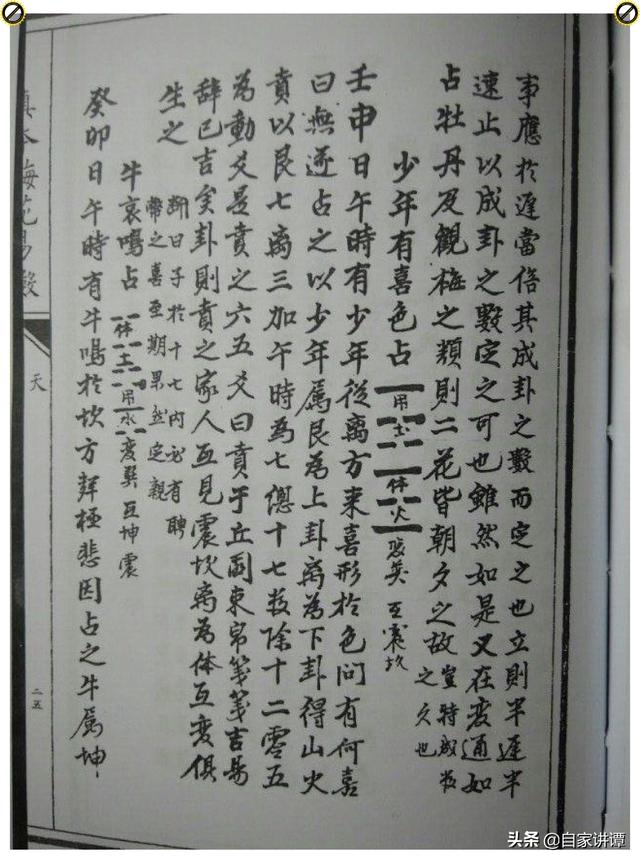 事應於遲當倍其成卦之數而定之也立則半遲半
速止以成卦之數定之可也雖然如是又在变通如
占牡丹及觀梅之類則二花皆朝夕之故豈特成数
之久也
少年有喜色占
用土
体火
变巽 互震坎
壬申日午時有少年從离方来喜形於色問有何喜
曰無遂占之以少年属艮為上卦离為下卦得山火
賁以艮七离三加午時為七總十七数除十二零五
為動爻是賁之六五爻曰賁于丘園束帛箋箋吉易
辞已吉矣卦則賁之家人互見震坎离為体互变俱
生之
断曰子於十七内必有聘
幣之喜至期果然定親
牛哀鳴占
体土
用水
变巽 互坤震
癸卯日午時有牛鳴於坎方聲極悲因占之牛属坤
梅花易数
天
二五
头条 @自家讲谭